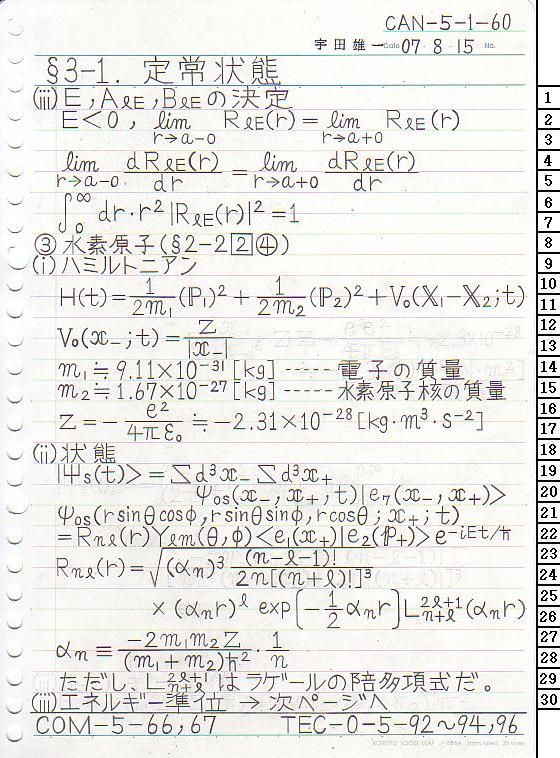 CAN-5-1-60
宇田雄一 Date 07・8・15 No.
§3-1. 定常状態
(iii) E, AℓE, BℓE の決定
E<0, lim r→a-0 RℓE(r) = lim r→a+0 RℓE(r)
lim r→a-0 dRℓE(r)/dr = lim r→a+0 dRℓE(r)/dr
∫₀^∞ dr・r²|RℓE(r)|² = 1
③ 水素原子(§2-2 2 ④)
(i) ハミルトニアン
H(t) = 1/2m₁ (ℙ₁)² + 1/2m₂ (ℙ₂)² + V₀(𝕏₁-𝕏₂;t)
V₀(x₋;t) = Z/|x₋|
m₁≒9.11×10⁻³¹[kg] ------ 電子の質量
m₂≒1.67×10⁻²⁷[kg] ----- 水素原子核の質量
Z = - e²/4πε₀ ≒ -2.31×10⁻²⁸[kg・m³・s⁻²]
(ii) 状態
|Ψs(t)> = ∑d³x₋ ∑d³x₊
ψ₀s(x₋,x₊,t)|e₇(x₋,x₊)>
ψ₀s(r sinθcosφ, r sinθsinφ, r cosθ; x₊; t)
= Rnℓ(r)Yℓm(θ,φ)<e₁(x₊)|e₂(ℙ₊)>e^(-iEt/ħ)
Rnℓ(r) = √((αn)³ (n-ℓ-1)!/2n[(n+ℓ)!]³)
×(αn r)^ℓ exp[-1/2 αn r] L^(2ℓ+1)_(n+ℓ)(αn r)
αn ≡ -2m₁m₂Z/(m₁+m₂)ħ² ・ 1/n
ただし、L^(2ℓ+1)_(n+ℓ) はラゲールの陪多項式だ。
(iii) エネルギー準位 → 次ページへ
COM-5-66,67 TEC-0-5-92〜94,96
KOKUYO LOOSE-LEAF ノ-886A 7mm ruled 31 lines
1
2
3
4
5
6
7
8
9
10
11
12
13
14
15
16
17
18
19
20
21
22
23
24
25
26
27
28
29
30